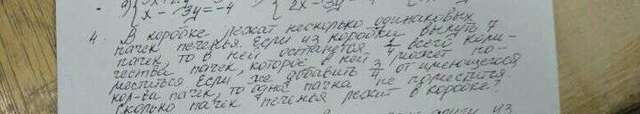 9) { x - 3y = -4 { 2x - 3y
4. В коробке лежат несколько одинаковых
пачек печенья. Если из коробки вынуть 7
пачек, то в ней останутся всего коли-
чества пачек, которое в ней может по-
меститься. Если же добавить от имеющегося
кол-ва пачек, то одна пачка не поместится.
Сколько пачек печенья лежит в коробке?
из